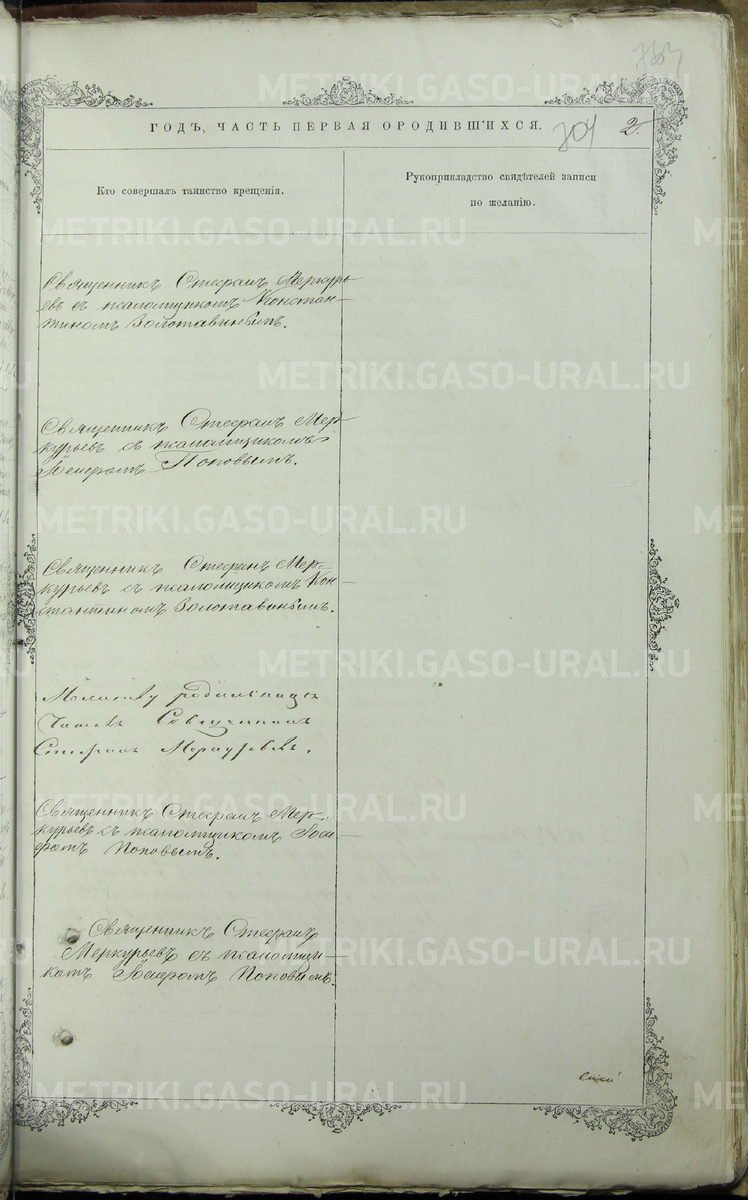 763
ГОДЪ, ЧАСТЬ ПЕРВАЯ О РОДИВШИХСЯ.
704
2.
Кто совершалъ таинство крещенія.
Рукоприкладство свидѣтелей записи
по желанію.
Священникъ Стефанъ Меркурь
евъ съ псаломщикомъ Констан-
тиномъ Золотавинымъ.
Священникъ Стефанъ Мер-
курьевъ съ псаломщикомъ
Іосифомъ Поповымъ.
Священникъ Стефанъ Мер-
курьевъ съ псаломщикомъ Кон
стантиномъ Золотавинымъ.
Молитву родильницѣ
читалъ Священникъ
Стефанъ Меркурьевъ.
Священникъ Стефанъ Мер-
курьевъ съ псаломщикомъ Іоси
фомъ Поповымъ.
Священникъ Стефанъ
Меркурьевъ съ псаломщи-
комъ Іосифомъ Поповымъ.
METRIKI.GASO-URAL.RU